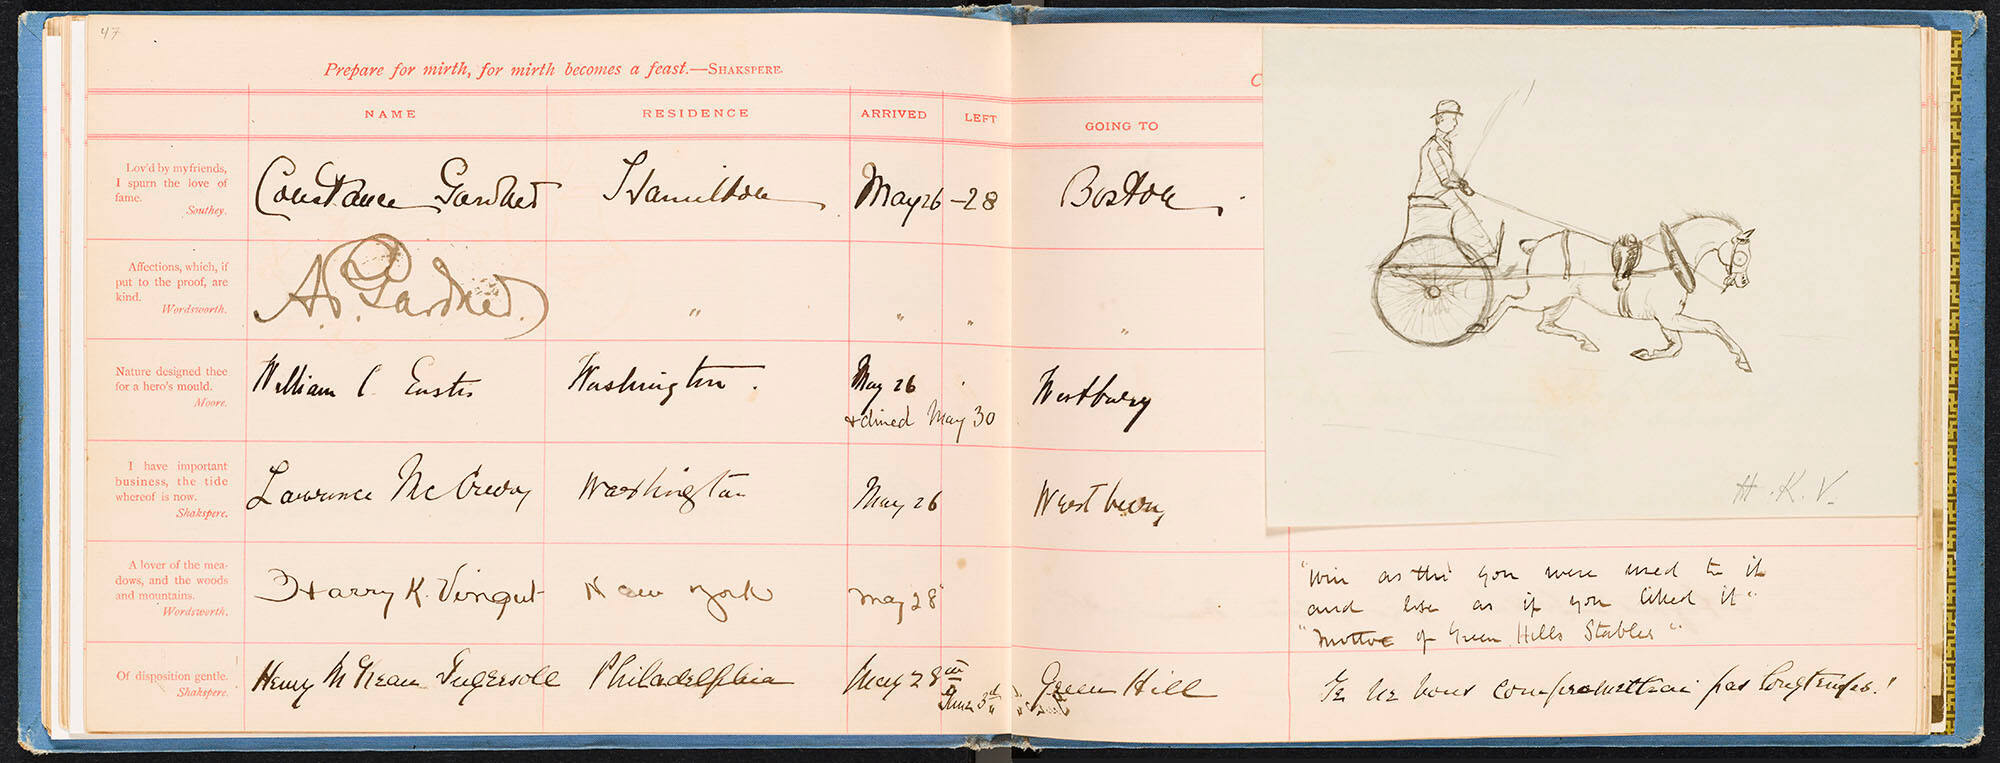 47
Prepare for mirth, for mirth becomes a feast.—SHAKSPERE.
C
NAME RESIDENCE ARRIVED LEFT GOING TO
Lov'd by my friends,
I spurn the love of
fame.
Southey.
Constance Gardner Hamilton May 26 – 28 Boston.
Affections, which, if
put to the proof, are
kind.
Wordsworth.
A. P. Gardner. " " " "
Nature designed thee
for a hero's mould.
Moore.
William C. Eustis Washington. May 26 Westbury
& dined May 30
I have important
business, the tide
whereof is now.
Shakspere.
Lawrence McCreery Washington May 26 Westbury
H. K. V.
A lover of the mea-
dows, and the woods
and mountains.
Wordsworth.
Harry K. Vingut New York May 28
"Win as tho' you were used to it
and lose as if you liked it"
"Motto of Green Hills Stables"
Of disposition gentle.
Shakspere.
Henry McKean Ingersoll Philadelphia May 28th June 3rd Green Hill Je ne vous compromettrai pas longtemps!